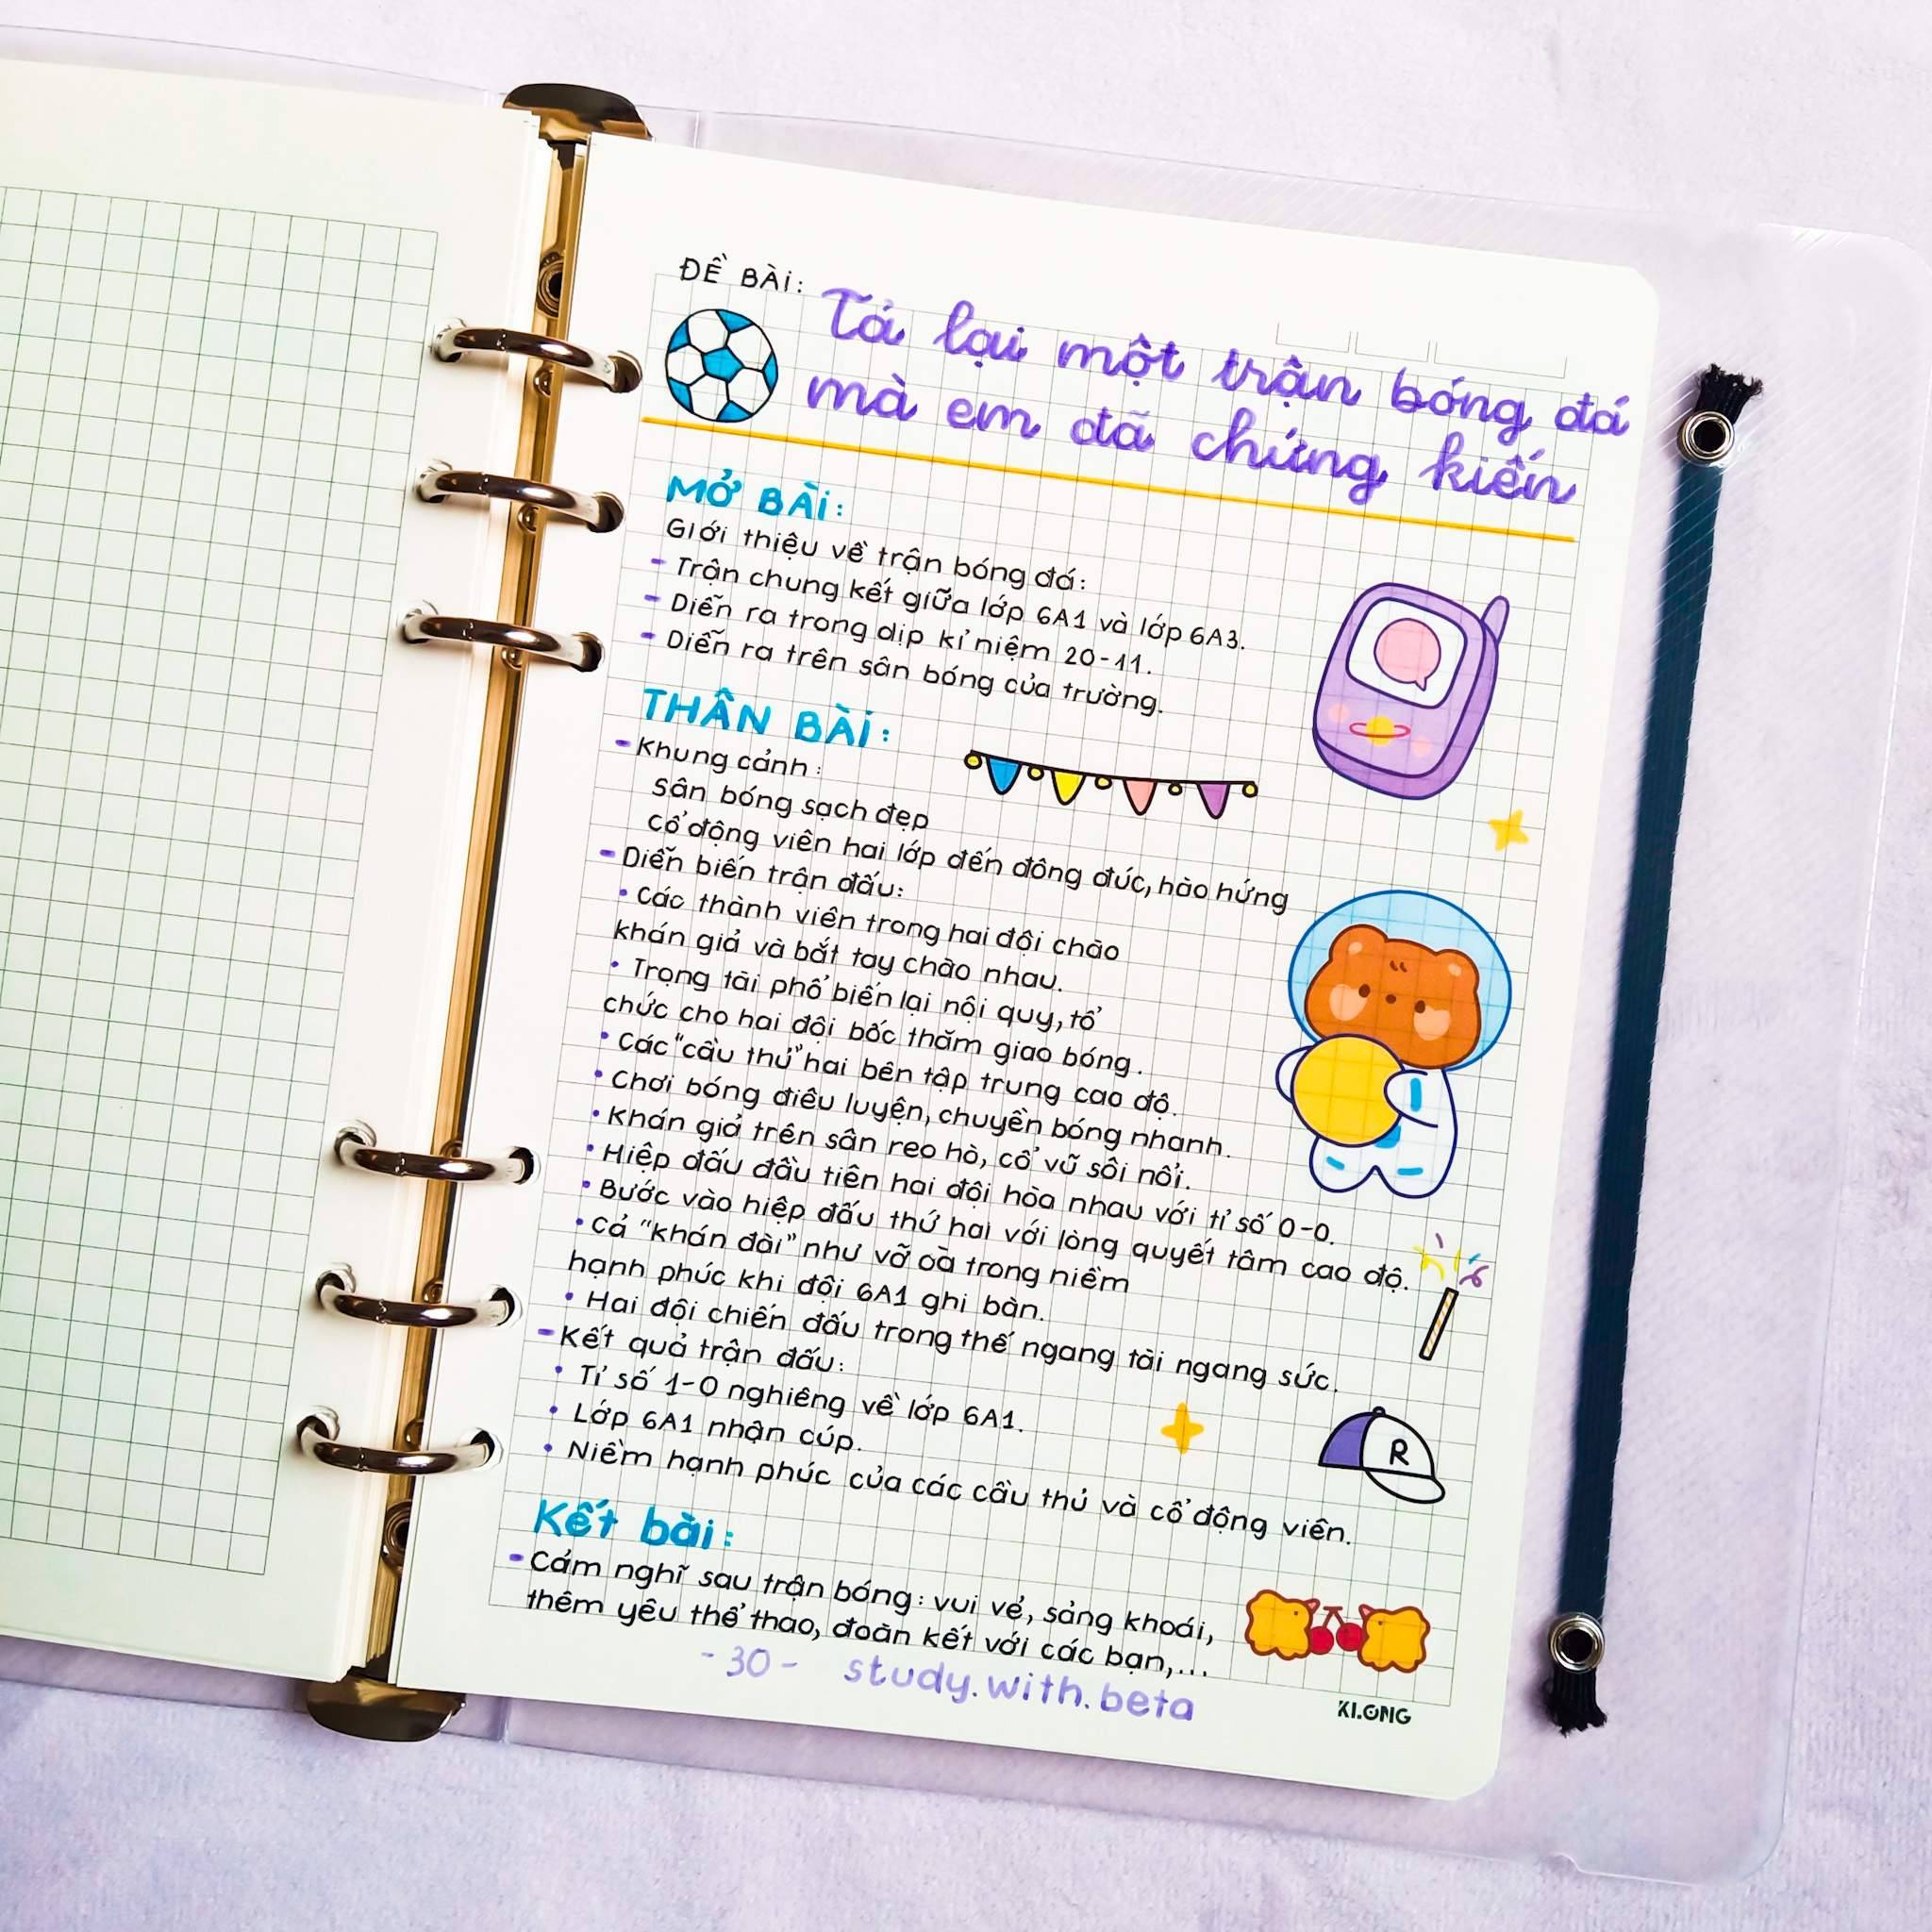 ĐỀ BÀI:
Tả lại một trận bóng đá
mà em đã chứng kiến
MỞ BÀI:
Giới thiệu về trận bóng đá:
- Trận chung kết giữa lớp 6A1 và lớp 6A3.
- Diễn ra trong dịp kỉ niệm 20-11.
- Diễn ra trên sân bóng của trường.
THÂN BÀI:
- Khung cảnh:
Sân bóng sạch đẹp
Cổ động viên hai lớp đến đông đúc, hào hứng
- Diễn biến trận đấu:
• Các thành viên trong hai đội chào
khán giả và bắt tay chào nhau.
• Trọng tài phổ biến lại nội quy, tổ
chức cho hai đội bốc thăm giao bóng.
• Các "cầu thủ" hai bên tập trung cao độ.
• Chơi bóng điêu luyện, chuyền bóng nhanh.
• Khán giả trên sân reo hò, cổ vũ sôi nổi.
• Hiệp đấu đầu tiên hai đội hòa nhau với tỉ số 0-0.
• Bước vào hiệp đấu thứ hai với lòng quyết tâm cao độ.
• Cả "khán đài" như vỡ oà trong niềm
hạnh phúc khi đội 6A1 ghi bàn.
• Hai đội chiến đấu trong thế ngang tài ngang sức.
- Kết quả trận đấu:
• Tỉ số 1-0 nghiêng về lớp 6A1.
• Lớp 6A1 nhận cúp.
• Niềm hạnh phúc của các cầu thủ và cổ động viên.
R
Kết bài:
- Cảm nghĩ sau trận bóng: vui vẻ, sảng khoái,
thêm yêu thể thao, đoàn kết với các bạn,...
- 30 - study.with.beta
KLONG